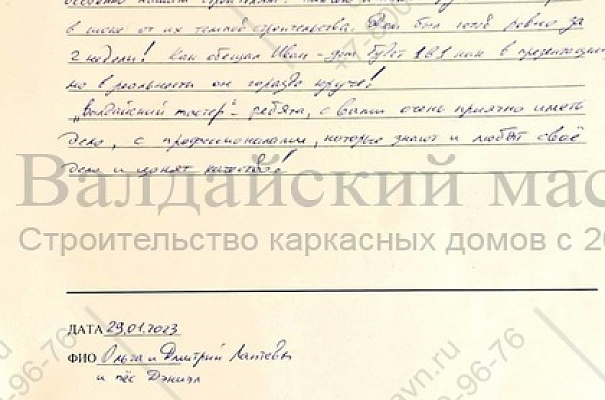 в шоке от их темпов строительства. Дом был готов ровно за
2 недели! Как обещал Иван - дом будет 1в1 как в презентации
но в реальности он гораздо круче!
"Валдайский мастер" - ребята, с вами очень приятно иметь
дело, с профессионалами, которые знают и любят своё
дело и ценят качество!
Валдайский мас
Строительство каркасных домов с 20
ДАТА 29.01.2023
ФИО Ольга и Дмитрий Лаптевы
и пёс Дэниэл
-96-76
avn.ru
-96-76